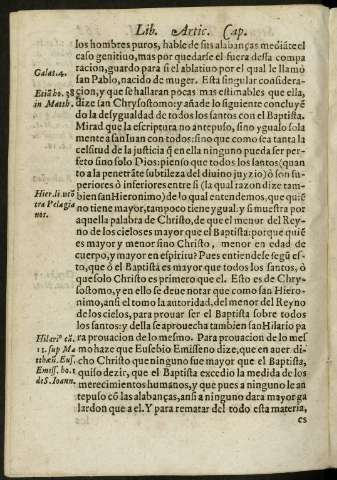 Lib. Artic. Cap.
los hombres puros, hable de sus alabanças mediãte el
caso genitiuo, mas por quedarse el fuera dessa compa
racion, guardo para si el ablatiuo por el qual le llamó
san Pablo, nacido de muger. Esta singular considera-
cion, y que se hallaran pocas mas estimables que ella,
dize san Chrysostomo: y añade lo siguiente concluyẽ
do la desygualdad de todos los santos con el Baptista.
Mirad que la escriptura no antepuso, sino ygualo sola
mente a san Iuan con todos: sino que como sea tanta la
celsitud de la justicia q̃ en ella ninguno pueda ser per-
feto sino solo Dios: pienso que todos los santos (quan
to a la penetrãte subtileza del diuino juyzio) ò son su-
periores ò inferiores entre si (la qual razon dize tam-
bien san Hieronimo) de lo qual entendemos, que quiẽ
no tiene mayor, tampoco tiene ygual: y si muestra por
aquella palabra de Christo, de que el menor del Rey-
no de los cielos es mayor que el Baptista: porque quiẽ
es mayor y menor sino Christo, menor en edad de
cuerpo, y mayor en espiritu? Pues entiendese segũ es-
to, que ó el Baptista es mayor que todos los santos, ò
que solo Christo es primero que el. Esto es de Chry-
sostomo, y en ello se deue notar que como san Hiero-
nimo, ansi el tomo la autoridad, del menor del Reyno
de los cielos, para prouar ser el Baptista sobre todos
los santos: y della se aprouecha tambien san Hilario pa
ra prouacion de lo mesmo. Para prouacion de lo mes
mo haze que Eusebio Emisseno dize, que en auer di-
cho Christo que ninguno fue mayor que el Baptista,
quiso dezir, que el Baptista excedio la medida de los
merecimientos humanos, y que pues a ninguno le an
tepuso cõ las alabanças, ansi a ninguno dara mayor ga
lardon que a el. Y para rematar del todo esta materia,
es
Galat. 4.
Etiã ho. 38
in Matth.
Hier. li. 1. cõ
tra Pelagia
nos.
Hilari⁹ cã.
11. sup Ma
tthæũ. Eus.
Emiss. ho. 1
de S. Ioann.